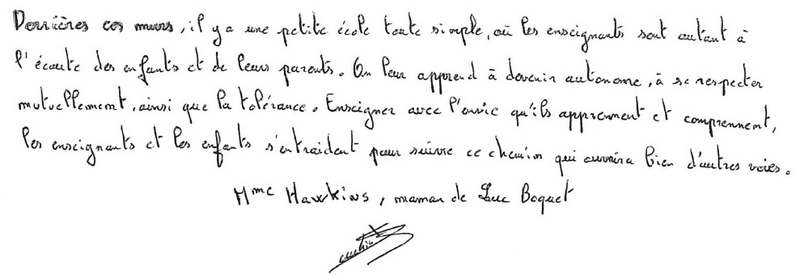 Derrières ces murs, il y a une petite école toute simple, où les enseignants sont autant à
l'écoute des enfants et de leurs parents. On leur apprend à devenir autonome, à se respecter
mutuellement, ainsi que la tolérance. Enseigner avec l'envie qu'ils apprennent et comprennent,
les enseignants et les enfants s'entraident pour suivre ce chemin qui ouvrira bien d'autres voies.
Mme Hawkins, maman de Luc Boquet